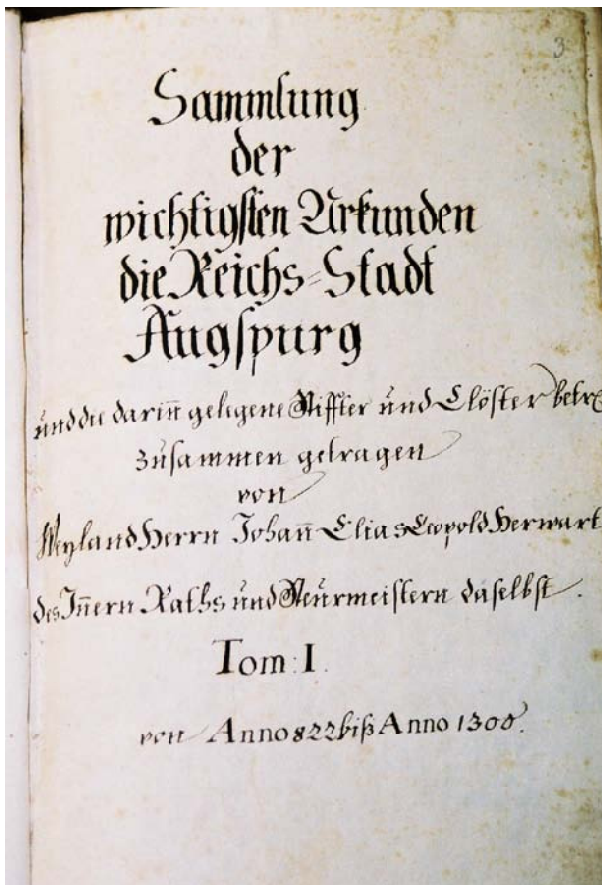 3
Sammlung
der
wichtigsten Urkunden
die Reichs=Stadt
Augspurg
und die darin̄ gelegene Stiffter und Clöster betrf
zusammen getragen
von
Weyland Herrn Johan̄ Elias Leopold Herwart
des In̄ern Raths und Steurmeistern daselbst.
Tom: I.
von Anno 822 biß Anno 1300.